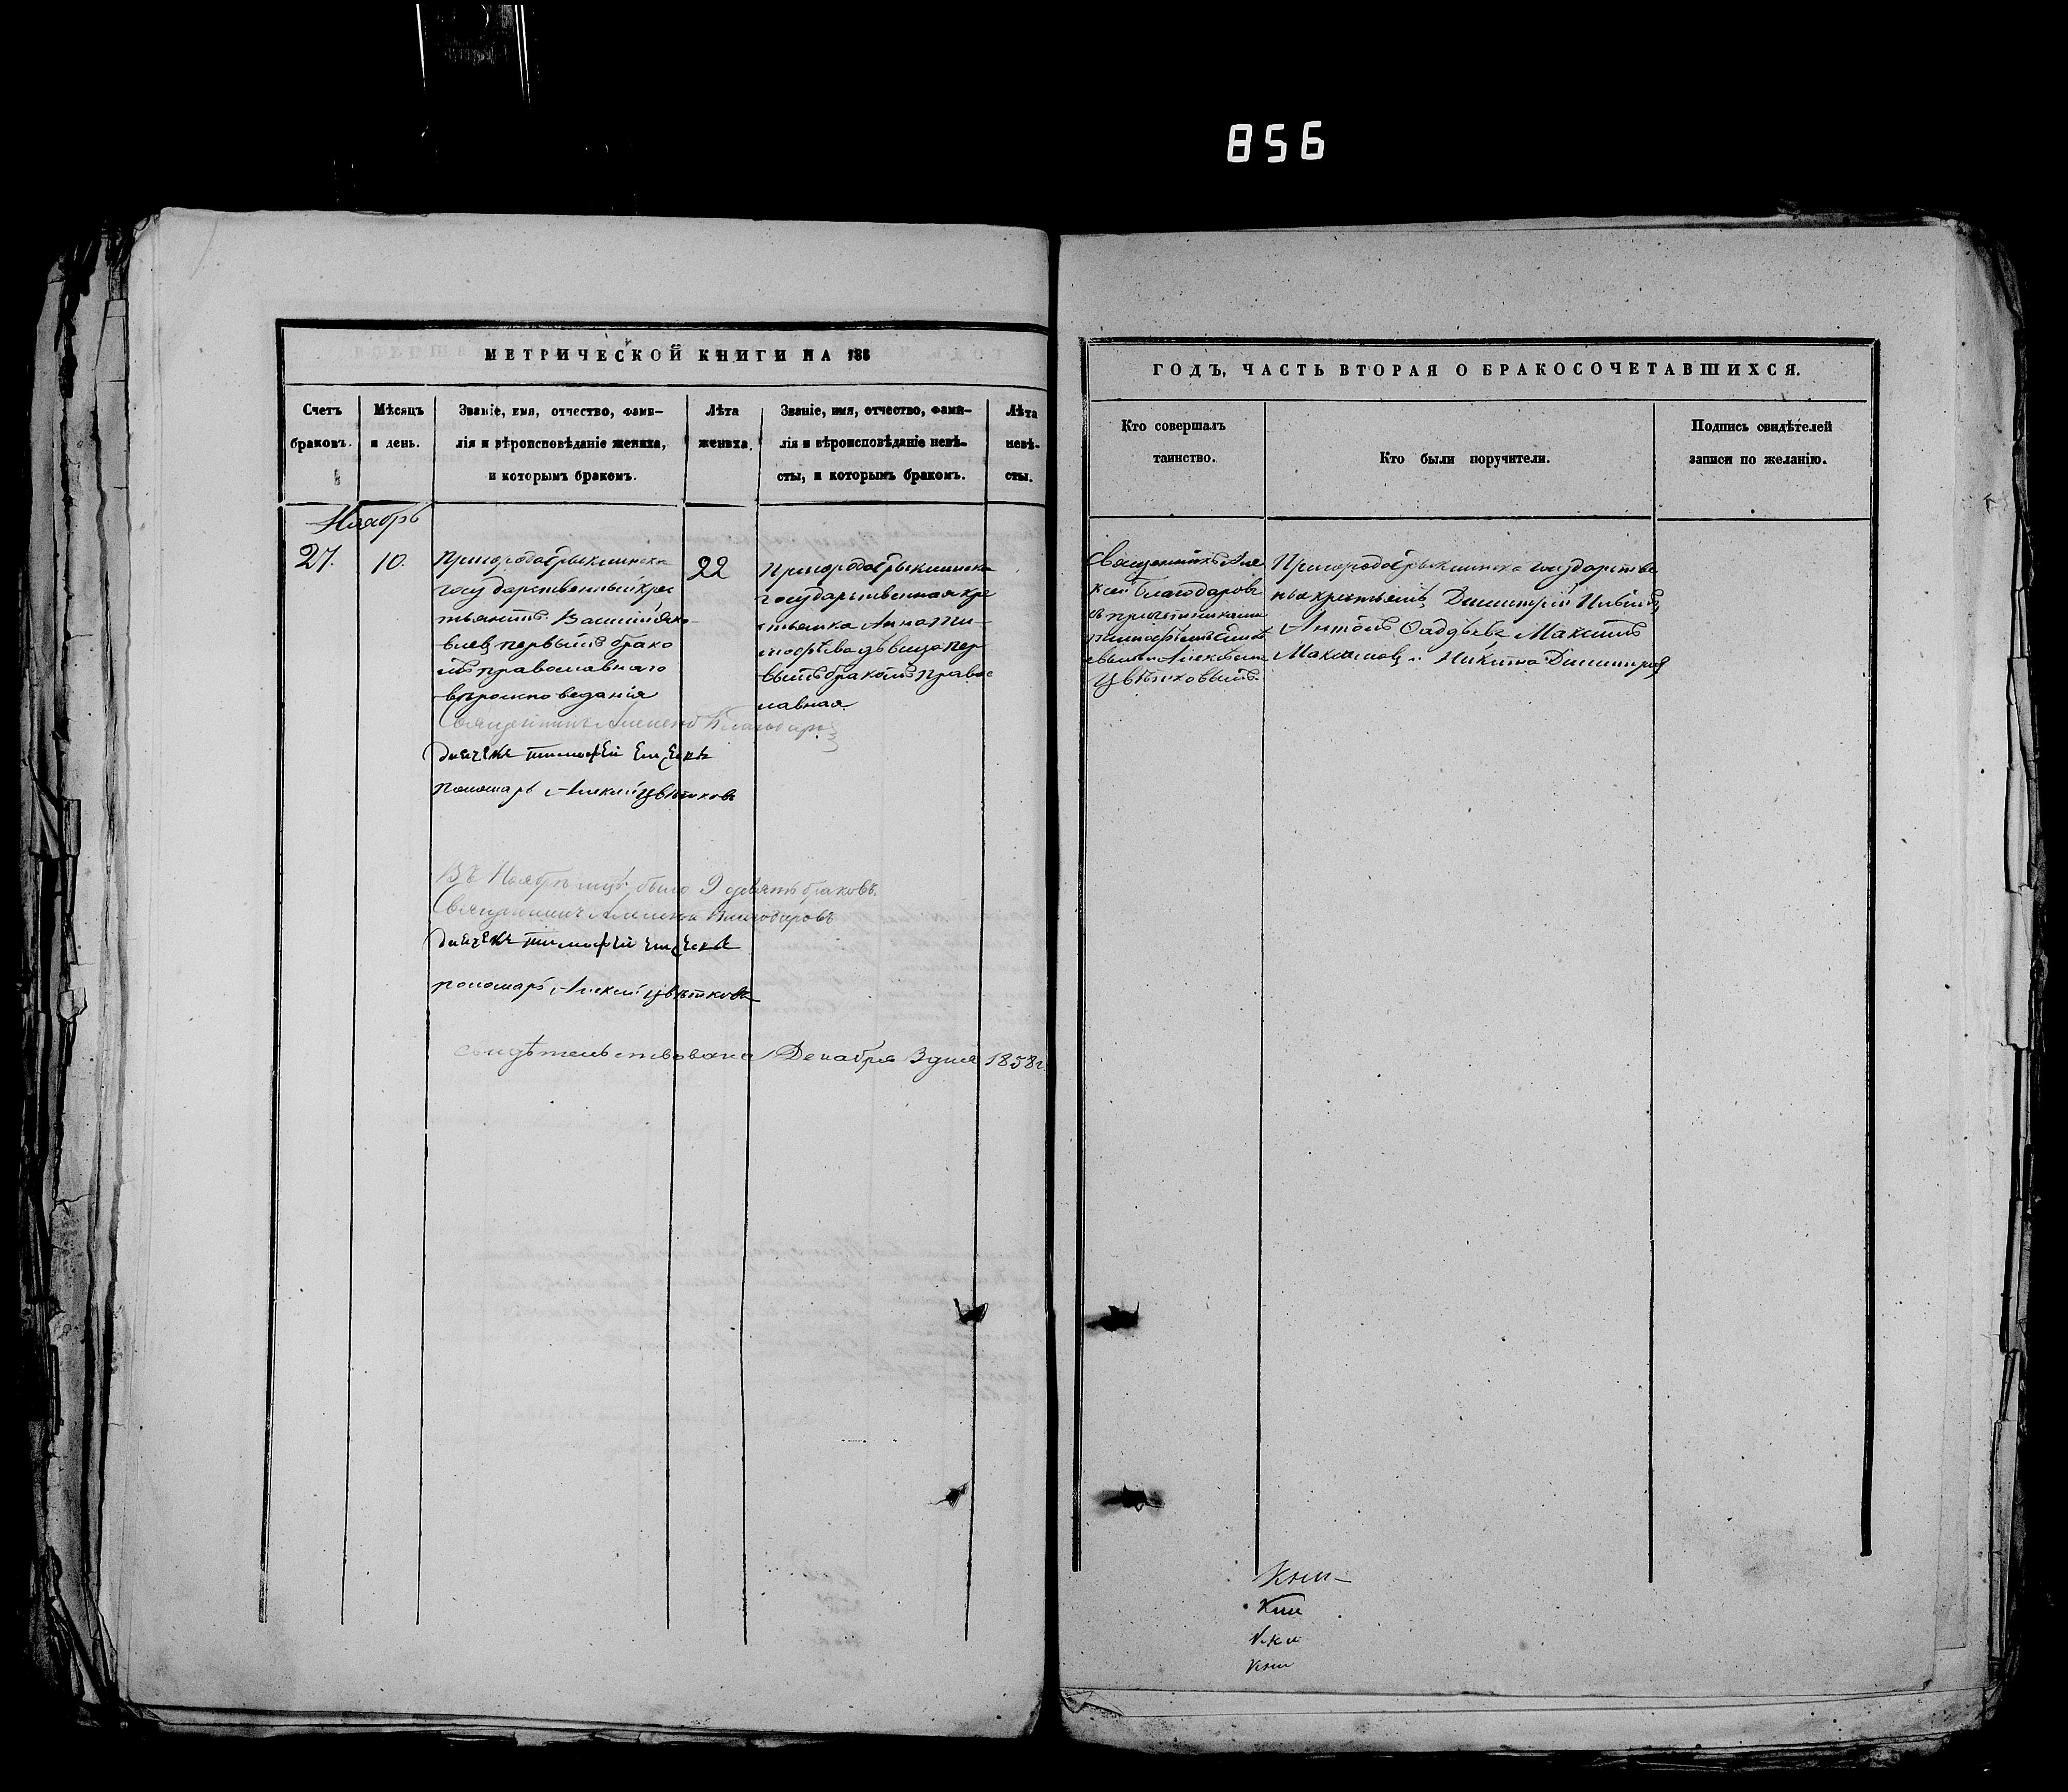 856
МЕТРИЧЕСКОЙ КНИГИ НА 188
Счетъ браковъ.
Мѣсяцъ и день.
Званіе, имя, отчество, фами-
лія и вѣроисповѣданіе жениха,
и которымъ бракомъ.
Лѣта жениха.
Званіе, имя, отчество, фами-
лія и вѣроисповѣданіе невѣ-
сты, и которымъ бракомъ.
Лѣта невѣ-
сты.
Ноябрь
27. 10.
государственный крес
тьянинъ Василий Яко
влевъ первымъ брако
мъ православнаго
вѣроисповеданія
22
государственная кре
стьянка Анна Ти
моѳѣева дѣвица пер
вымъ бракомъ правос
лавная
Священникъ Алексей Благодаровъ
дьячекъ тимофей
пономарь Алексей Цвѣтковъ
Въ Ноябрѣ мцѣ было 9 девять браковъ.
Священникъ Алексей Благодаровъ
дьячекъ тимофей
пономарь Алексей Цвѣтковъ
свидѣтельствована Декабря 3 дня 1858 г.
ГОДЪ, ЧАСТЬ ВТОРАЯ О БРАКОСОЧЕТАВШИХСЯ.
Кто совершалъ
таинство.
Кто были поручители.
Подпись свидѣтелей
записи по желанію.
Священникъ Але
ксей Благодаровъ
съ причетниками
Цвѣтковымъ.
государстве
Димитрій
Антонъ Фаддѣевъ Максимъ
Максимовъ и Никита Димитріевъ
Кни-
Кни
Кни